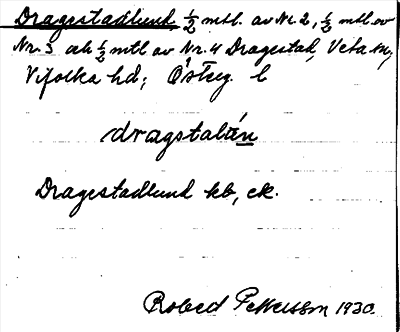 Dragestadlund ½ mtl. av Nr 2, ½ mtl av
Nr. 3 och ½ mtl av Nr. 4 Dragestad, Veta sn,
Vifolka hd; Österg. l
dragstaltén
Dragestadlund kb, ek.
Robert Pettersson 1930.